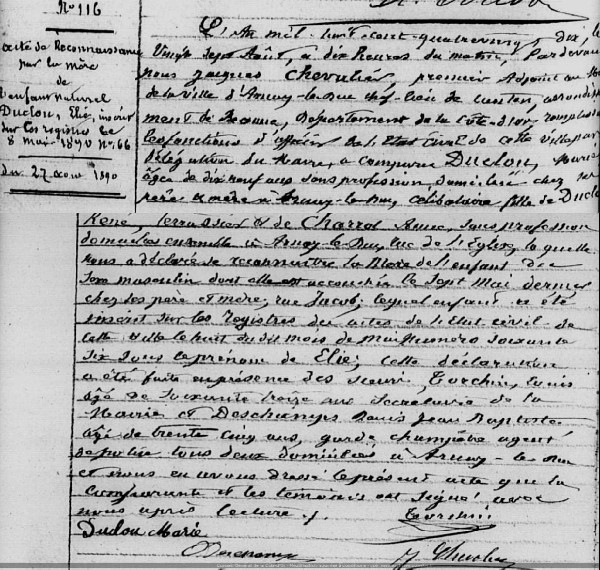 N° 116
acte de Reconnaissance
par la mère
de
l'enfant naturel
Duclou, Elie, inscrit
sur les registres le
8 mai 1890 N° 66
du 27 août 1890
L'An mil huit cent quatrevingt dix, le
Vingt sept Août, à dix heures du matin, Pardevant
nous Jacques Chevalier, premier Adjoint au Maire
de la Ville d'Arnay-le-Duc chef-lieu de canton, arrondisse
ment de Beaune, Département de la Côte-d'or remplissant
les fonctions d'officier de l'Etat Civil de cette Ville par
Délégation du Maire, a comparu Duclou, Marie
âgée de dix neuf ans sans profession, domiciliée chez ses
père & mère à Arnay-le-Duc, célibataire fille de Duclou
René, terrassier et de Charrot Anne, sans profession
domiciliés ensemble à Arnay-le-Duc, rue de l'Eglise, laquelle
nous a déclaré se reconnaître la Mère de l'enfant du
sexe masculin dont elle est accouchée le sept Mai dernier
chez ses père et mère, rue Jacob; lequel enfant a été
inscrit sur les registres des actes de l'Etat civil de
cette Ville le huit du dit mois de mai numéro soixante
six sous le prénom de Elie; cette déclaration
a été faite en présence des sieurs Torchin, Louis
âgé de soixante treize ans Secrétaire de la
Mairie et Deschamps Louis Jean Baptiste
âgé de trente cinq ans, garde champêtre agent
de police tous deux domiciliés à Arnay-le-Duc
et nous en avons dressé le présent acte que la
comparante et les témoins ont signé avec
nous après lecture. Torchin
Duclou Marie
Deschamps J. Chevalier